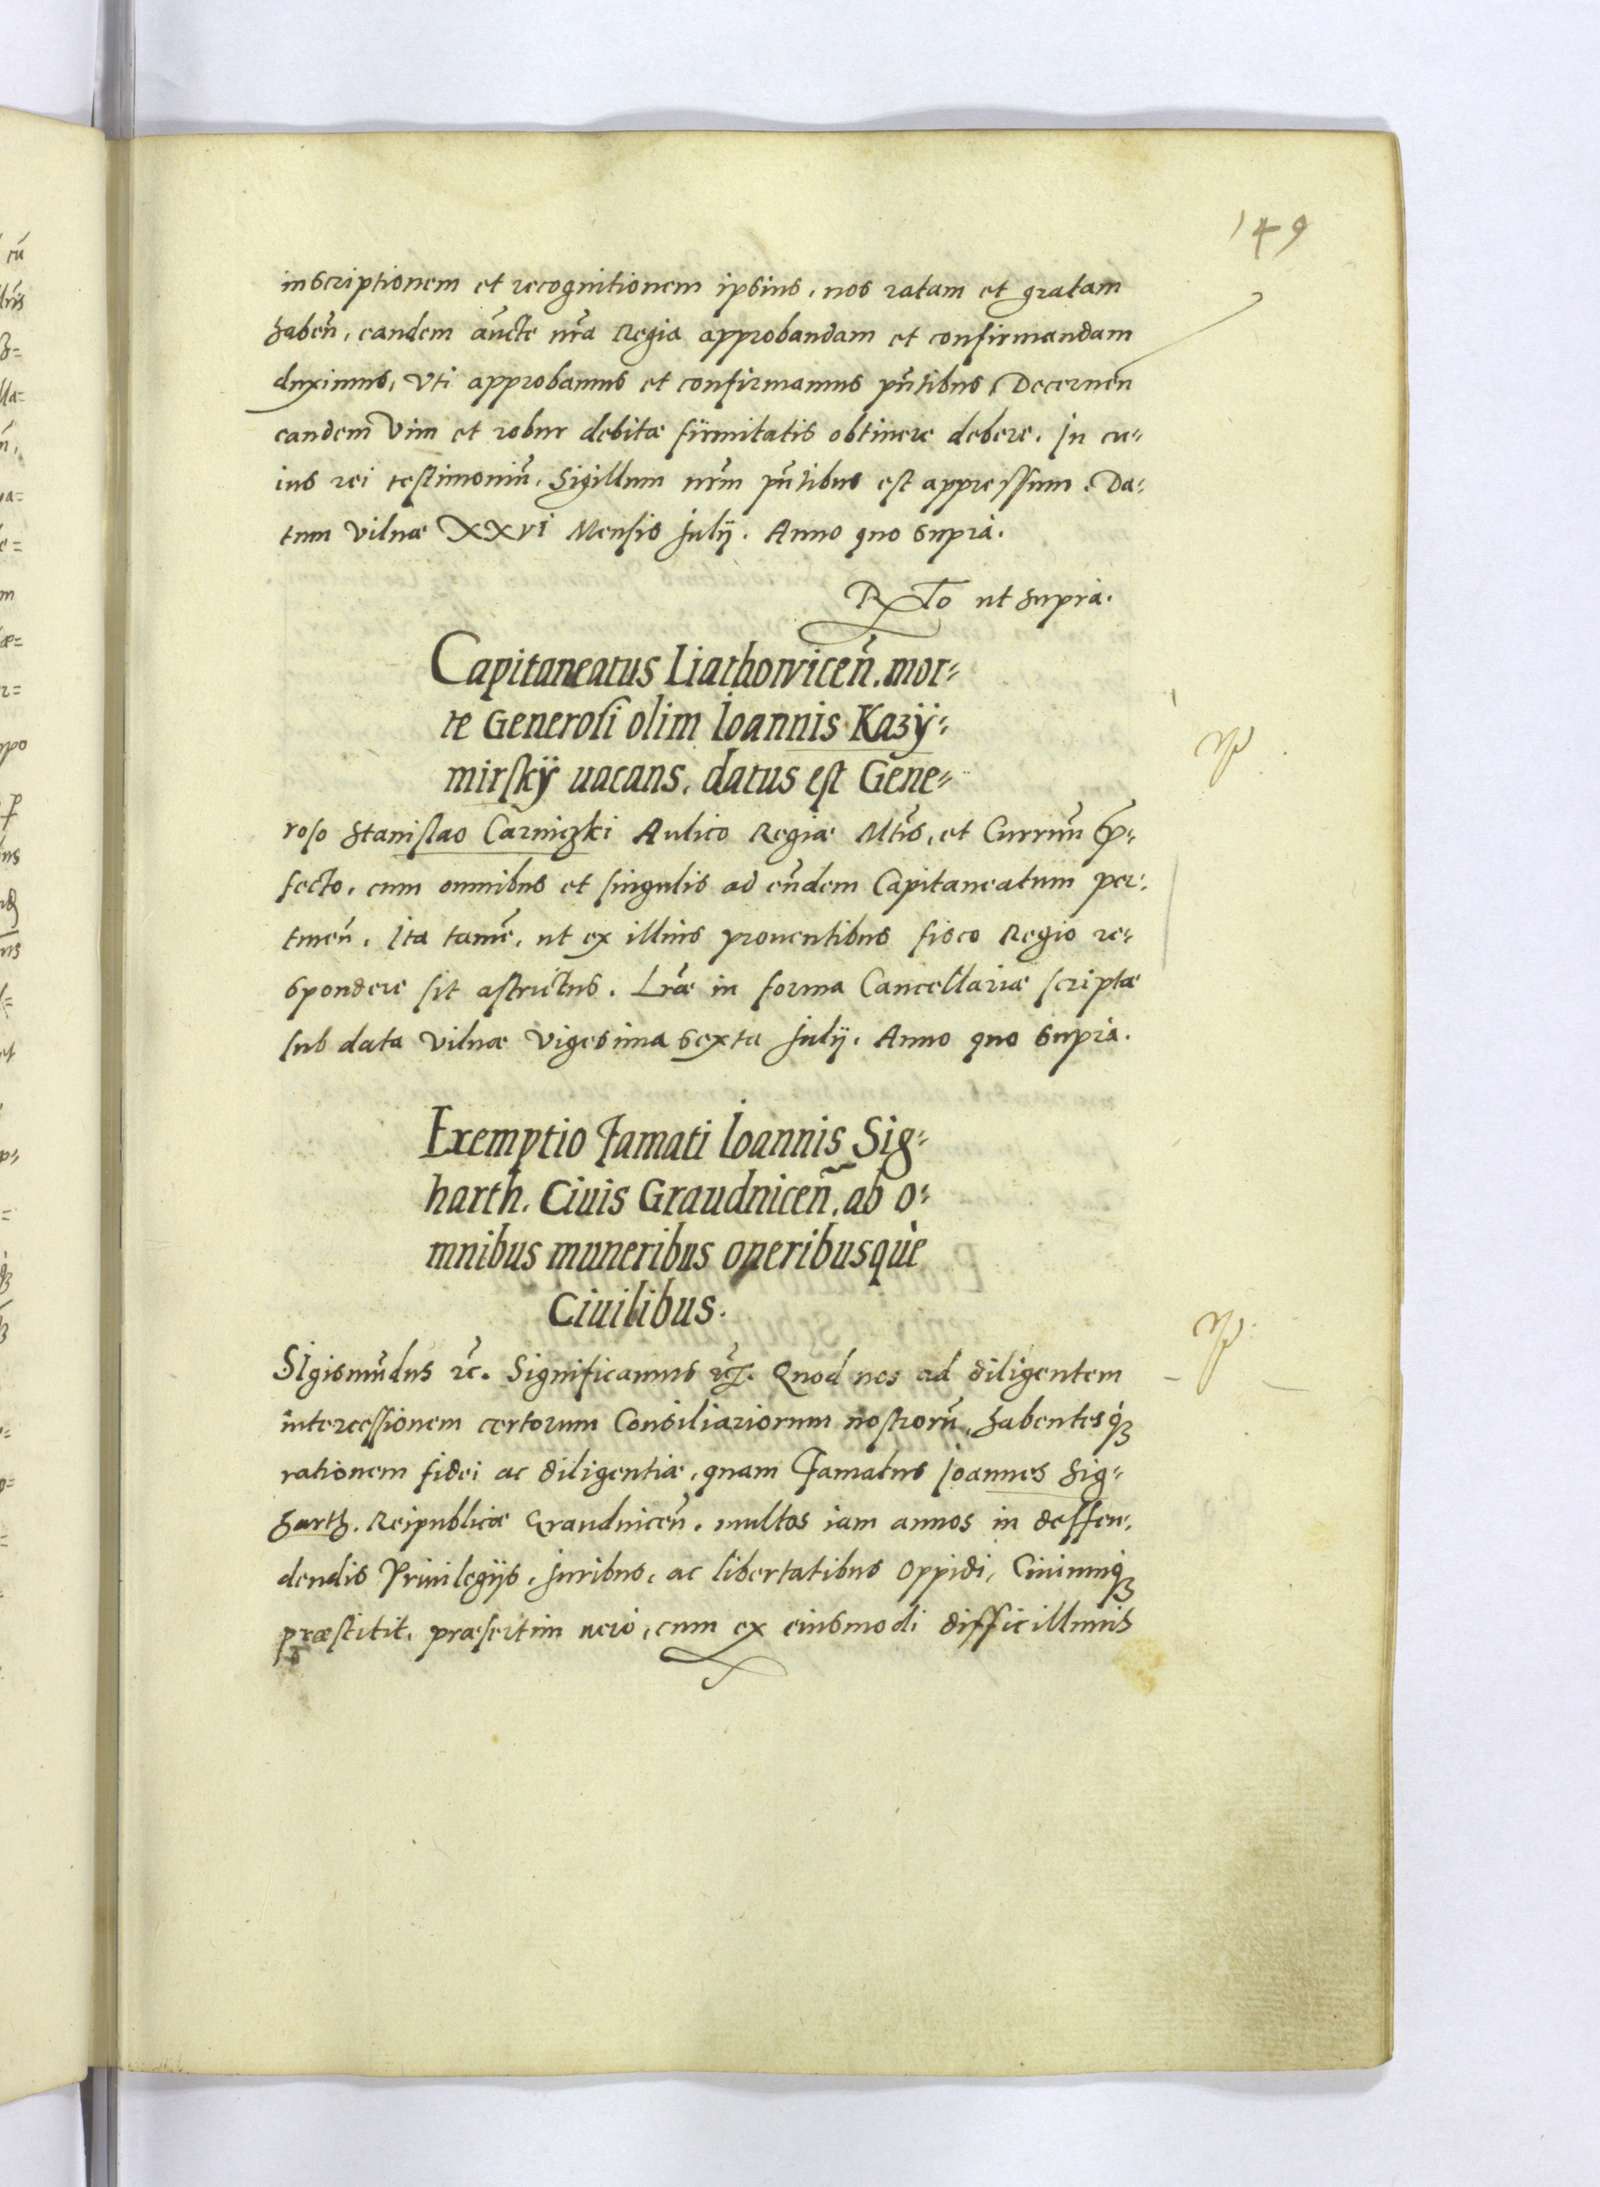 149
inscriptionem et recognitionem ipsius, nos ratam et gratam
habeñ, eandem aucte nr̃a Regia approbandam et confirmandam
duximus, Vti approbamus et confirmamus pñtibus, Decerneñ
eandem Vim et robur debitæ firmitatis obtinere debere. In cu-
ius rei testimoniũ, Sigillum nrm̃ pñtibus est appressum. Da-
tum Vilnæ XXVI Mensis Julij. Anno quo supra.
Rto ut supra.
Capitaneatus Liathowiceñ. mor-
te Generosi olim Ioannis Kazÿ-
mirskÿ uacans, datus est Gene-
roso Stanislao Carniczki Aulico Regiæ Mtis, et Curruũ p-
fecto, cum omnibus et singulis ad eũdem Capitaneatum per-
tineñ. Ita tamẽ, ut ex illius prouentibus fisco Regio re-
spondere sit astrictus. Lræ in forma Cancellariæ scriptæ
sub data Vilnæ Vigesima sexta Julij. Anno quo supra.
Exemptio Famati Ioannis Sig-
harth. Ciuis Graudniceñ, ab o-
mnibus muneribus operibusquè
Ciuilibus.
SIgismũdus ꝛc. Significamus ꝛc. Quod nos ad diligentem
intercessionem certorum Consiliariorum nostrorũ, habentesqꝫ
rationem fidei ac diligentiæ, quam Famatus Ioannes Sig-
harth. Reipublicæ Graudniceñ. multos iam annos in deffen-
dendis Priuilegijs, Juribus, ac libertatibus Oppidi, Ciuiumqꝫ
præstitit, præsertim uero, cum ex eiusmodi difficillimis